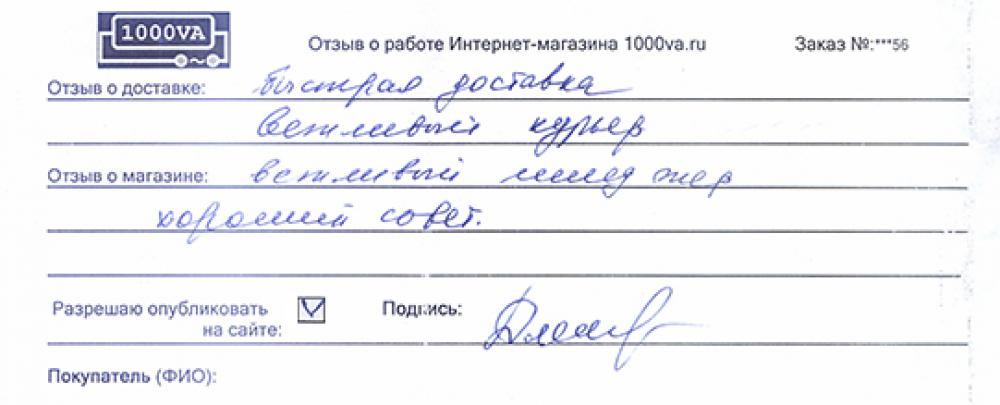 1000VA
Отзыв о работе Интернет-магазина 1000va.ru Заказ №:***56
Отзыв о доставке: быстрая доставка
Вежливый курьер
Отзыв о магазине: вежливый менеджер
хороший совет.
Разрешаю опубликовать
на сайте:
Подпись:
Покупатель (ФИО):